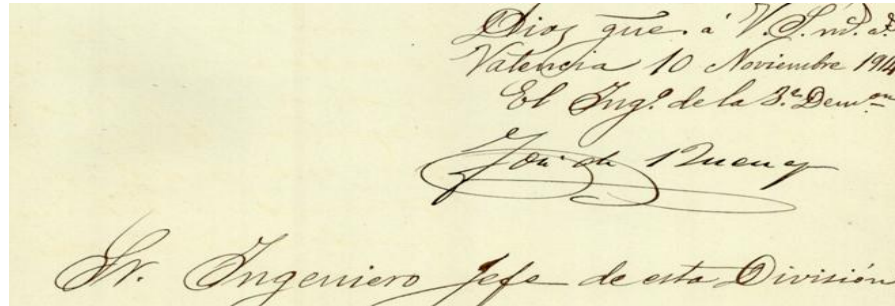 Dios gue. á V.S. ms. as.
Valencia 10 Noviembre 1914
El Ingo. de la 3a. Demon
José de
Sr. Ingeniero Jefe de esta División